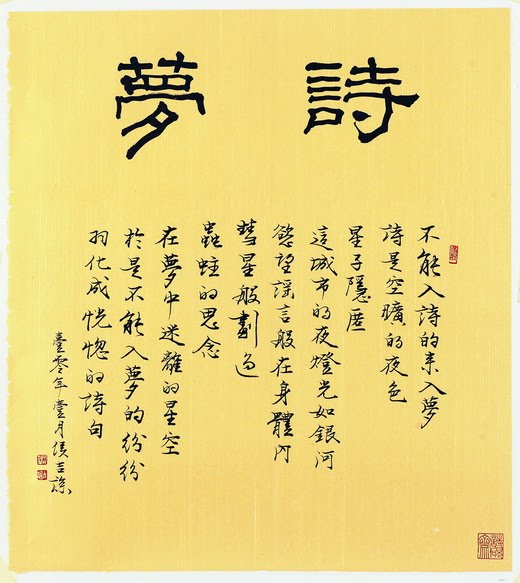 詩夢
不能入詩的來入夢
詩是空曠的夜色
星子隱匿
這城市的夜燈光如銀河
慾望謠言般在身體內
彗星般劃過
蟲蛀的思念
在夢中迷離的星空
於是不能入夢的紛紛
羽化成恍惚的詩句
壹零年壹月侯吉諒